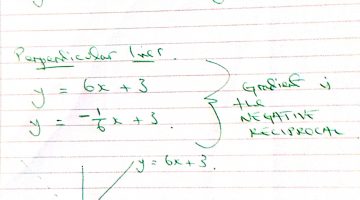 Perpendicular Lines.
y = 6x + 3
y = -1/6 x + 3.
Gradient is
the
NEGATIVE
RECIPROCAL
y = 6x + 3.